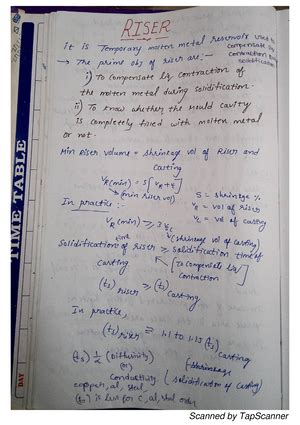 RISER
it is Temporary molten metal reservoirs used to
compensate liq
contraction during
solidification
→ The prime obj of riser are:-
i) To compensate liq contraction of
the molten metal during solidification.
ii) To know whether the mould cavity
is completely filled with molten metal
or not.
Min Riser volume = shrinkage vol of Riser and
Casting
VR(min) = S[VR+4]
(min riser vol)
S = shrinkage %
VR = vol of riser
Vc = vol of casting
In practice:-
VR(min) ≥ 3Vc
Vc(shrinkage vol of casting)
time
Solidification of riser ≥ Solidification time of
casting
[To compensate liq
contraction
(ts)riser ≥ (ts)casting
In practice,
(ts)riser ≥ 1.1 to 1.15 (ts)casting
(ts) 1/ (Diffusivity
(or)
conductivity
(shrinkage
solidification of casting)
copper, al, steel
(ts) is less for C, al, steel order
TIME TABLE
DAY
Scanned by TapScanner